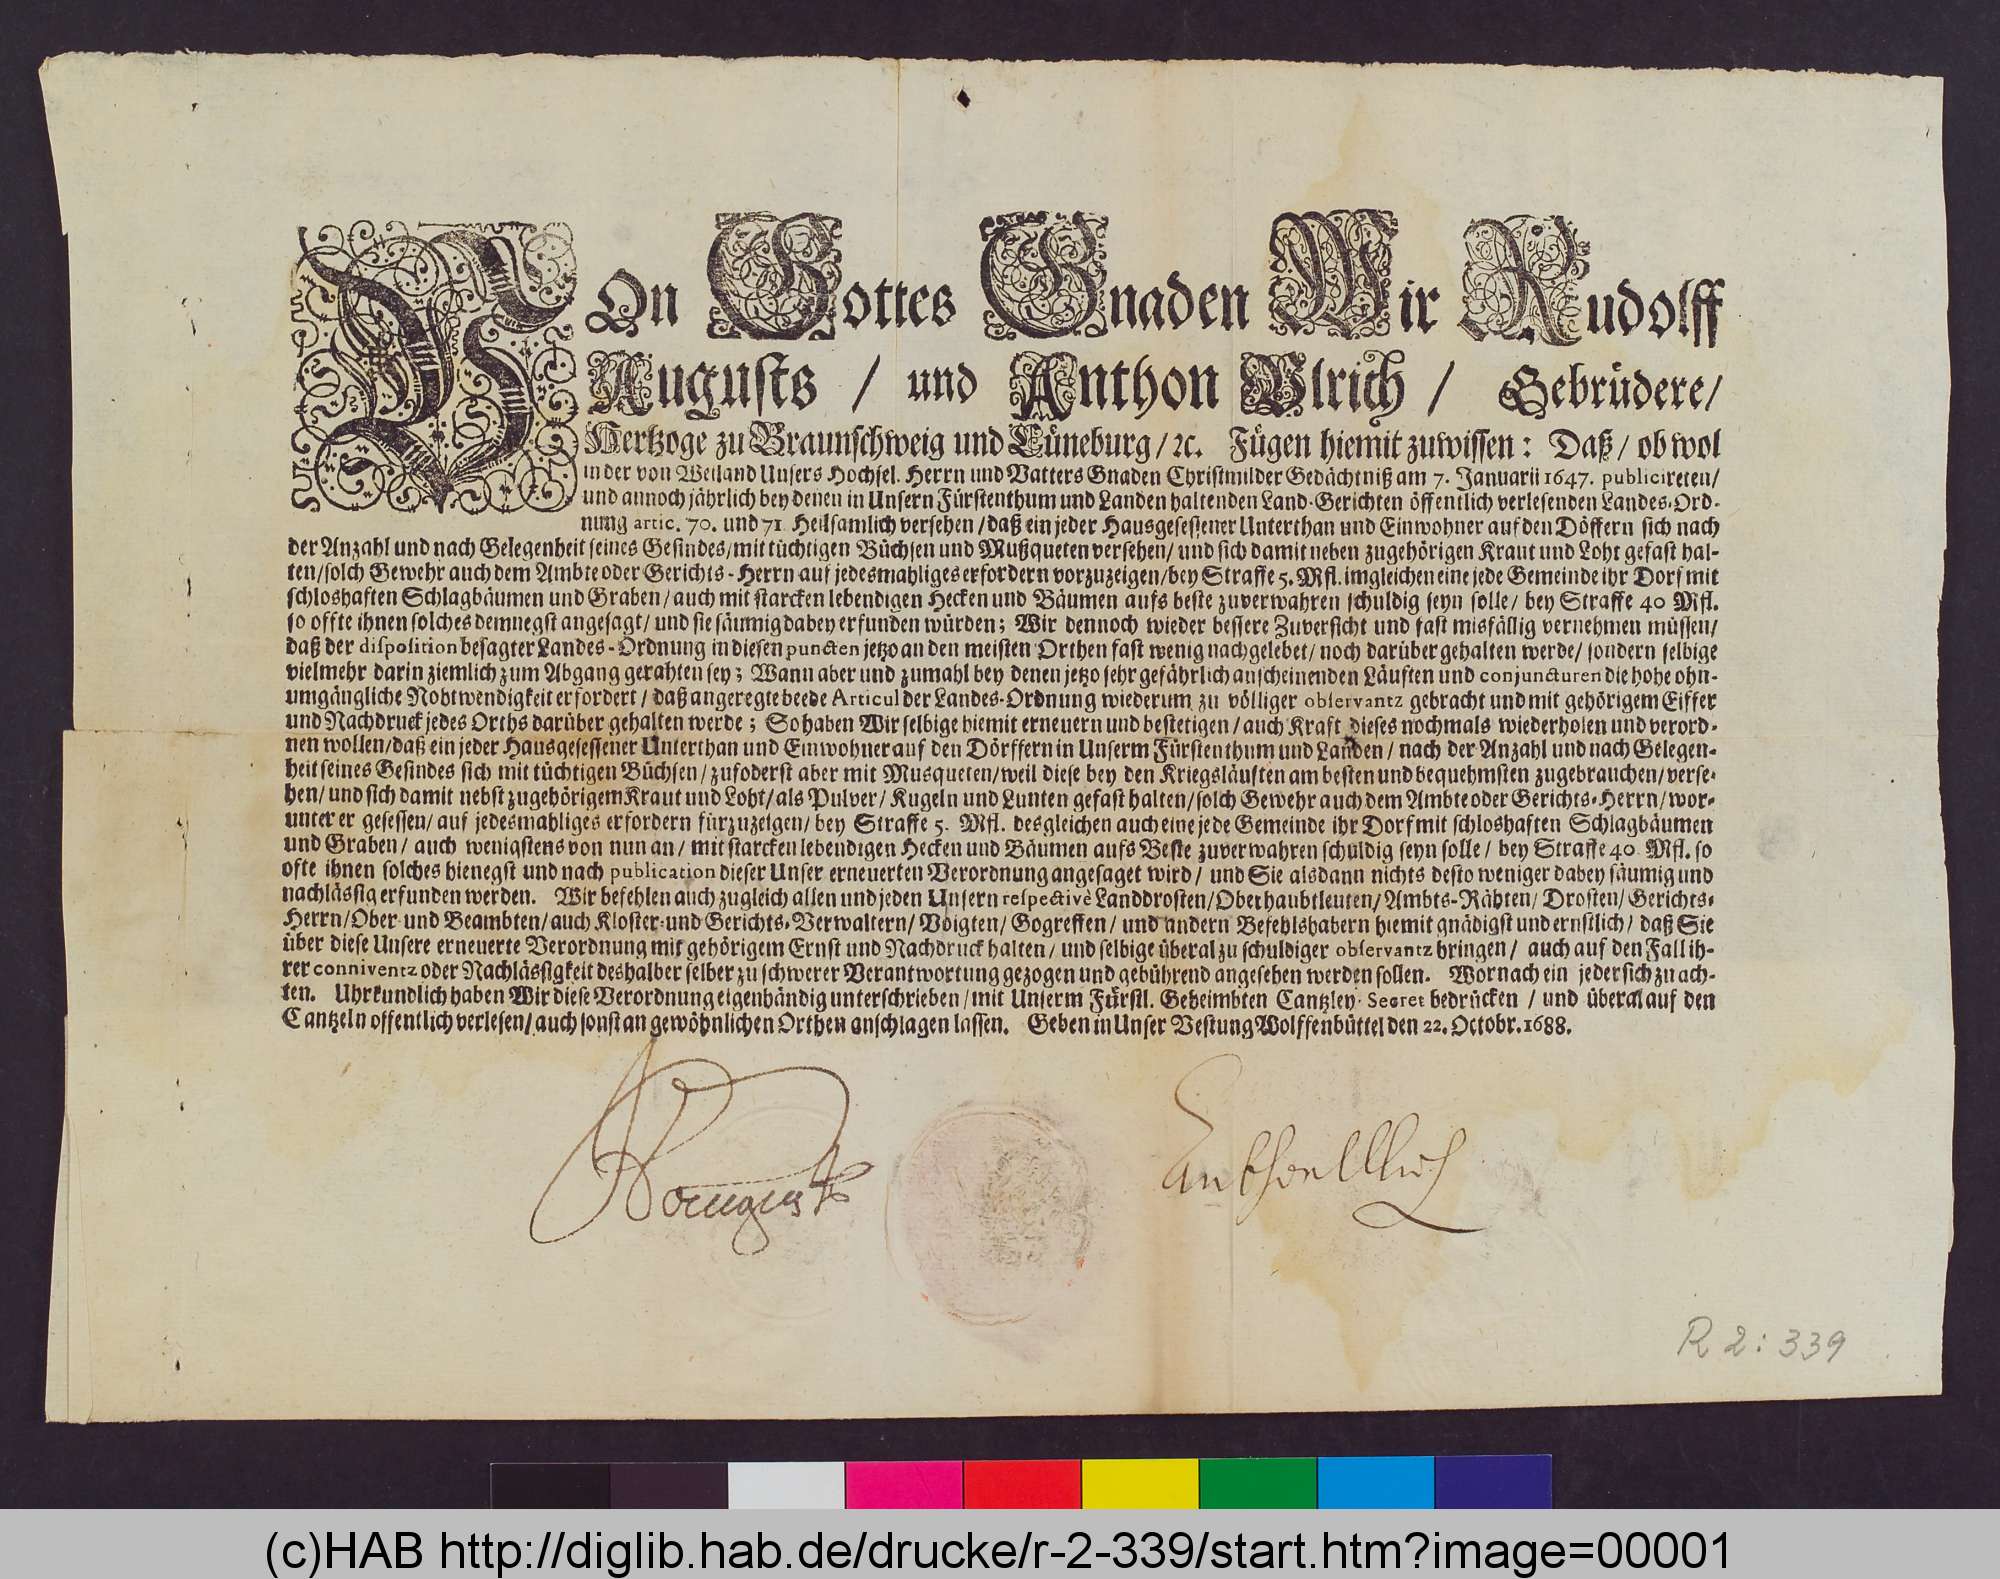 VOn Gottes Gnaden Wir Rudolff
Augusts / und Anthon Ulrich / Gebrüdere /
Hertzoge zu Braunschweig und Lüneburg / ꝛc. Fügen hiemit zuwissen: Daß / ob wol
in der von Weiland Unsers Hochsel. Herrn und Vatters Gnaden Christmilder Gedächtniß am 7. Januarii 1647. publicireten /
und annoch jährlich bey denen in Unsern Fürstenthum und Landen haltenden Land-Gerichten öffentlich verlesenden Landes-Ord-
nung artic. 70. und 71 Heilsamlich versehen / daß ein jeder Hausgesessener Unterthan und Einwohner auf den Döffern sich nach
der Anzahl und nach Gelegenheit seines Gesindes / mit tüchtigen Büchsen und Mußqueten versehen / und sich damit neben zugehörigen Kraut und Loht gefast hal-
ten / solch Gewehr auch dem Ambte oder Gerichts-Herrn auf jedesmahliges erfordern vorzuzeigen / bey Straffe 5. Mfl. imgleichen eine jede Gemeinde ihr Dorf mit
schloshaften Schlagbäumen und Graben / auch mit starcken lebendigen Hecken und Bäumen aufs beste zuverwahren schuldig seyn solle / bey Straffe 40 Mfl.
so offte ihnen solches demnegst angesagt / und sie säumig dabey erfunden würden; Wir dennoch wieder bessere Zuversicht und fast misfällig vernehmen müssen /
daß der disposition besagter Landes-Ordnung in diesen puncten jetzo an den meisten Orthen fast wenig nachgelebet / noch darüber gehalten werde / sondern selbige
vielmehr darin ziemlich zum Abgang gerahten sey; Wann aber und zumahl bey denen jetzo sehr gefährlich anscheinenden Läuften und conjuncturen die hohe ohn-
umgängliche Nohtwendigkeit erfordert / daß angeregte beede Articul der Landes-Ordnung wiederum zu völliger observantz gebracht und mit gehörigem Eiffer
und Nachdruck jedes Orths darüber gehalten werde; So haben Wir selbige hiemit erneuern und bestetigen / auch Kraft dieses nochmals wiederholen und verord-
nen wollen / daß ein jeder Hausgesessener Unterthan und Einwohner auf den Dörffern in Unserm Fürstenthum und Landen / nach der Anzahl und nach Gelegen-
heit seines Gesindes sich mit tüchtigen Büchsen / zufoderst aber mit Musqueten / weil diese bey den Kriegsläuften am besten und bequehmsten zugebrauchen / verse-
hen / und sich damit nebst zugehörigem Kraut und Loht / als Pulver / Kugeln und Lunten gefast halten / solch Gewehr auch dem Ambte oder Gerichts-Herrn / wor-
unter er gesessen / auf jedesmahliges erfordern fürzuzeigen / bey Straffe 5. Mfl. desgleichen auch eine jede Gemeinde ihr Dorf mit schloshaften Schlagbäumen
und Graben / auch wenigstens von nun an / mit starcken lebendigen Hecken und Bäumen aufs Beste zuverwahren schuldig seyn solle / bey Straffe 40 Mfl. so
ofte ihnen solches hienegst und nach publication dieser Unser erneuerten Verordnung angesaget wird / und Sie alsdann nichts desto weniger dabey säumig und
nachlässig erfunden werden. Wir befehlen auch zugleich allen und jeden Unsern respectivè Landdrosten / Oberhaubtleuten / Ambts-Rähten / Drosten / Gerichts-
Herrn / Ober- und Beambten / auch Kloster- und Gerichts-Verwaltern / Voigten / Gogreffen / und andern Befehlshabern hiemit gnädigst und ernstlich / daß Sie
über diese Unsere erneuerte Verordnung mit gehörigem Ernst und Nachdruck halten / und selbige überal zu schuldiger observantz bringen / auch auf den Fall ih-
rer conniventz oder Nachlässigkeit deshalber selber zu schwerer Verantwortung gezogen und gebührend angesehen werden sollen. Wornach ein jeder sich zu ach-
ten. Uhrkundlich haben Wir diese Verordnung eigenhändig unterschrieben / mit Unserm Fürstl. Geheimbten Cantzley-Secret bedrücken / und überal auf den
Cantzeln offentlich verlesen / auch sonst an gewöhnlichen Orthen anschlagen lassen. Geben in Unser Vestung Wolffenbüttel den 22. Octobr. 1688.
RAugust
Anthon Ulrich
R 2: 339
(c)HAB http://diglib.hab.de/drucke/r-2-339/start.htm?image=00001